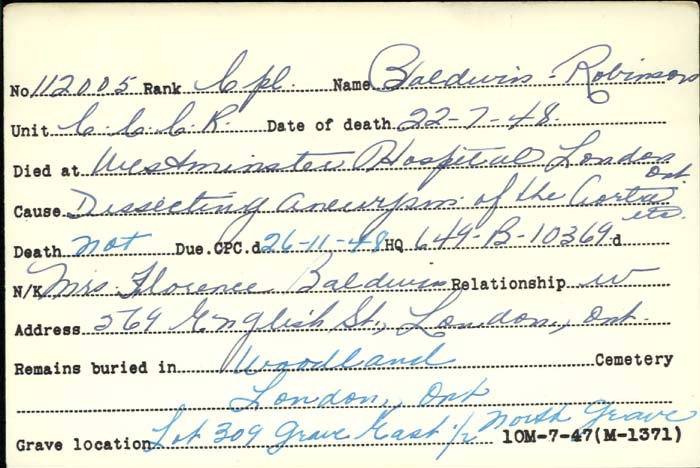 No 112005 Rank Cpl. Name Baldwin - Robinson
Unit C.C.C.R. Date of death 22-7-48.
Died at Westminster Hospital London Ont
Cause Dissecting aneurysm of the Aorta etc.
Death not Due.CPC.d 26-11-48 HQ 649-B-10369 d
N/K Mrs. Florence Baldwin Relationship W
Address 569 English St., London, Ont.
Remains buried in Woodland Cemetery
London, Ont
Grave location Lot 309 Grave East 1/2 North Grave 10M-7-47(M-1371)